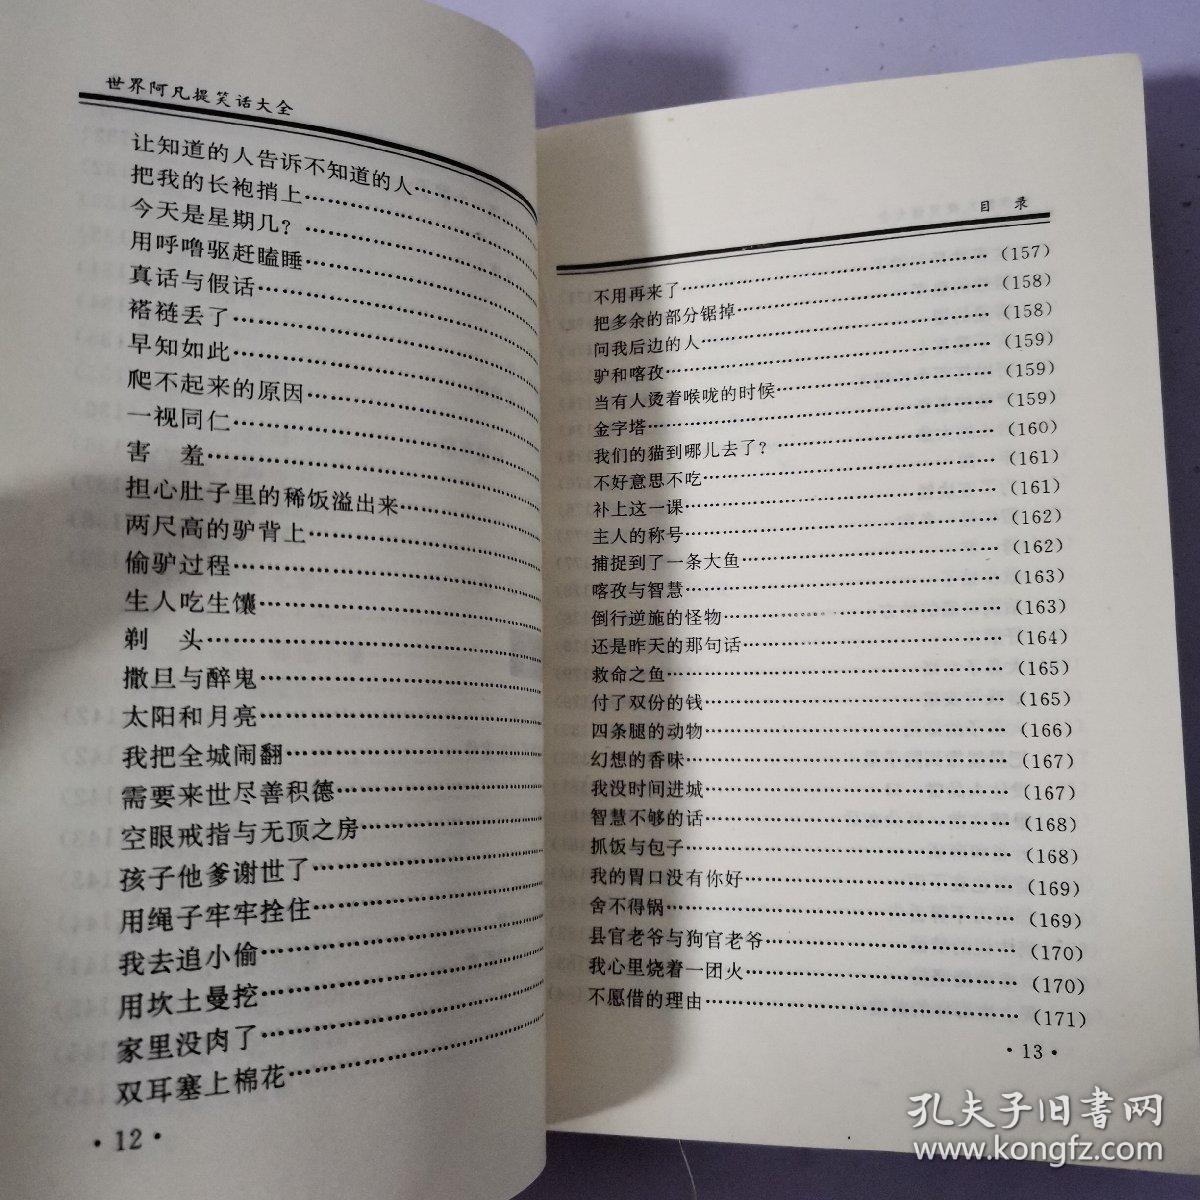 世界阿凡提笑话大全
让知道的人告诉不知道的人
把我的长袍捎上
今天是星期几?
用呼噜驱赶瞌睡
真话与假话
褡裢丢了
早知如此
爬不起来的原因
一视同仁
害 羞
担心肚子里的稀饭溢出来
两尺高的驴背上
偷驴过程
生人吃生馕
剃 头
撒旦与醉鬼
太阳和月亮
我把全城闹翻
需要来世尽善积德
空眼戒指与无顶之房
孩子他爹谢世了
用绳子牢牢拴住
我去追小偷
用坎土曼挖
家里没肉了
双耳塞上棉花
·12·
目 录
不用再来了 (157)
把多余的部分锯掉 (158)
问我后边的人 (158)
驴和喀孜 (159)
当有人烫着喉咙的时候 (159)
金字塔 (159)
我们的猫到哪儿去了? (160)
不好意思不吃 (161)
补上这一课 (161)
主人的称号 (162)
捕捉到了一条大鱼 (162)
喀孜与智慧 (163)
倒行逆施的怪物 (163)
还是昨天的那句话 (164)
救命之鱼 (165)
付了双份的钱 (165)
四条腿的动物 (166)
幻想的香味 (167)
我没时间进城 (167)
智慧不够的话 (168)
抓饭与包子 (168)
我的胃口没有你好 (169)
舍不得锅 (169)
县官老爷与狗官老爷 (170)
我心里烧着一团火 (170)
不愿借的理由 (171)
·13·
孔夫子旧书网
www.kongfz.com